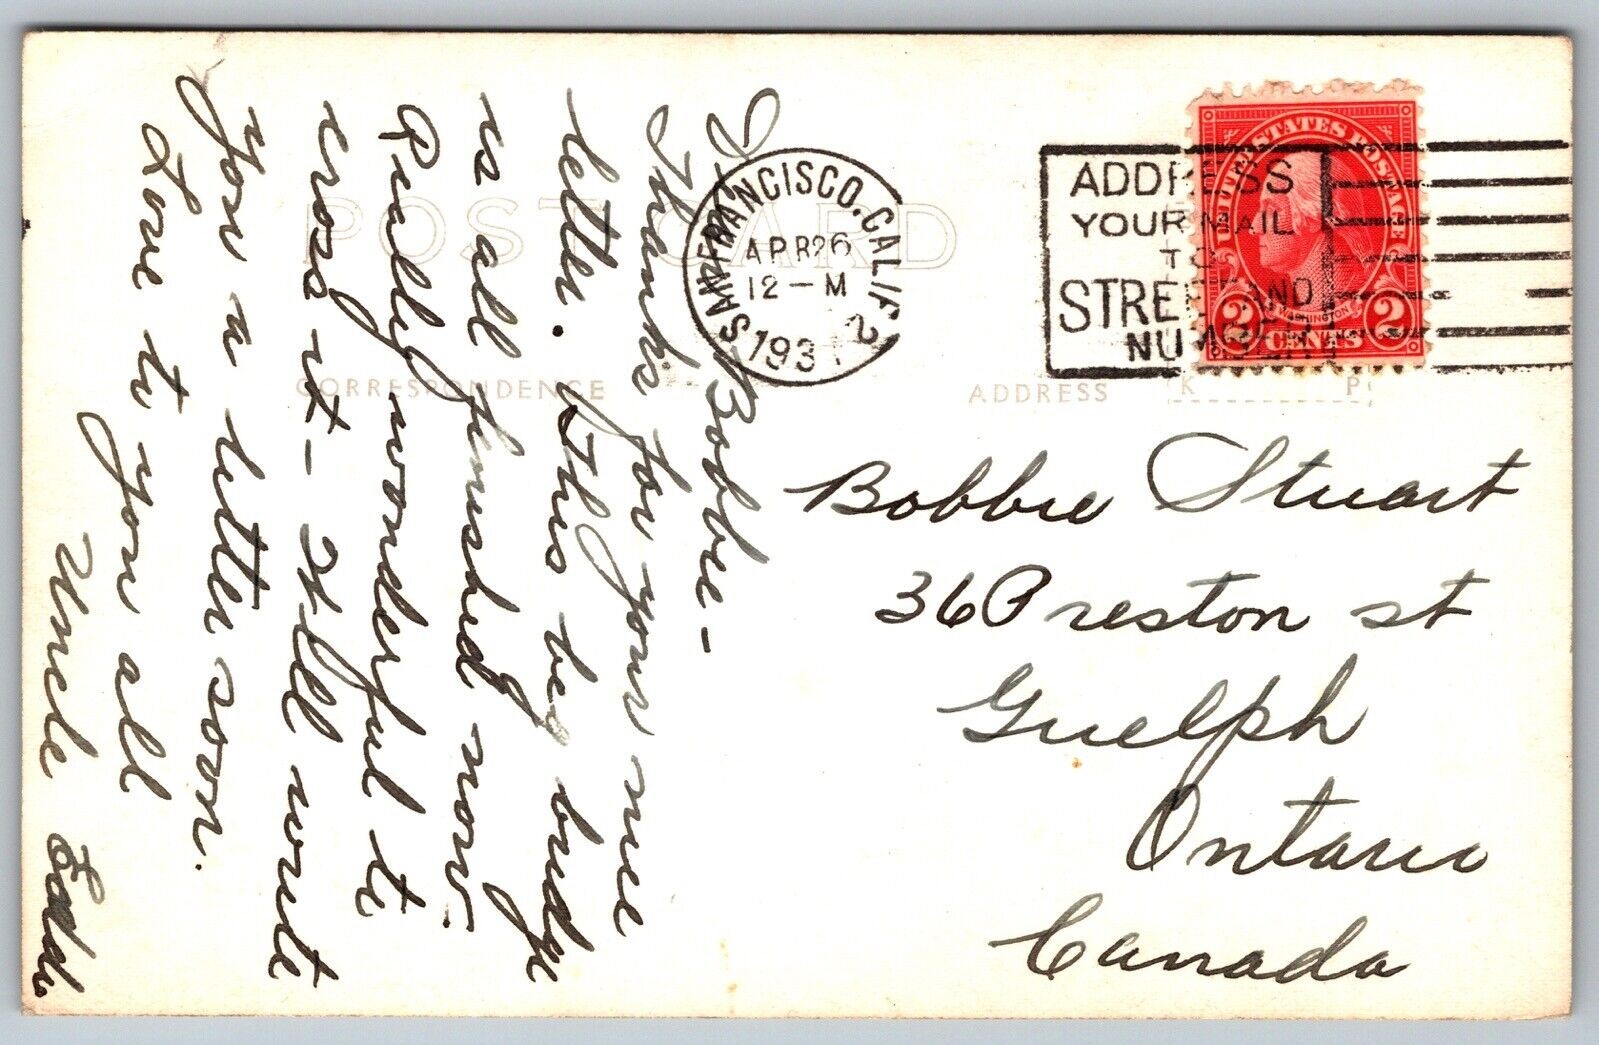 Dear Bobbie -
Thanks for your nice
letter. This big bridge
is all finished now.
Really wonderful to
cross it - Will write
you a letter soon.
Love to you all
Uncle Eddie
POST CARD
CORRESPONDENCE
ADDRESS
K P
SAN FRANCISCO, CALIF.
APR 26
12 - M
193
2
ADDRESS
YOUR MAIL
TO
STREET AND
NUMBER
UNITED STATES POSTAGE
WASHINGTON
2 CENTS 2
Bobbie Stuart
36 Preston st
Guelph
Ontario
Canada